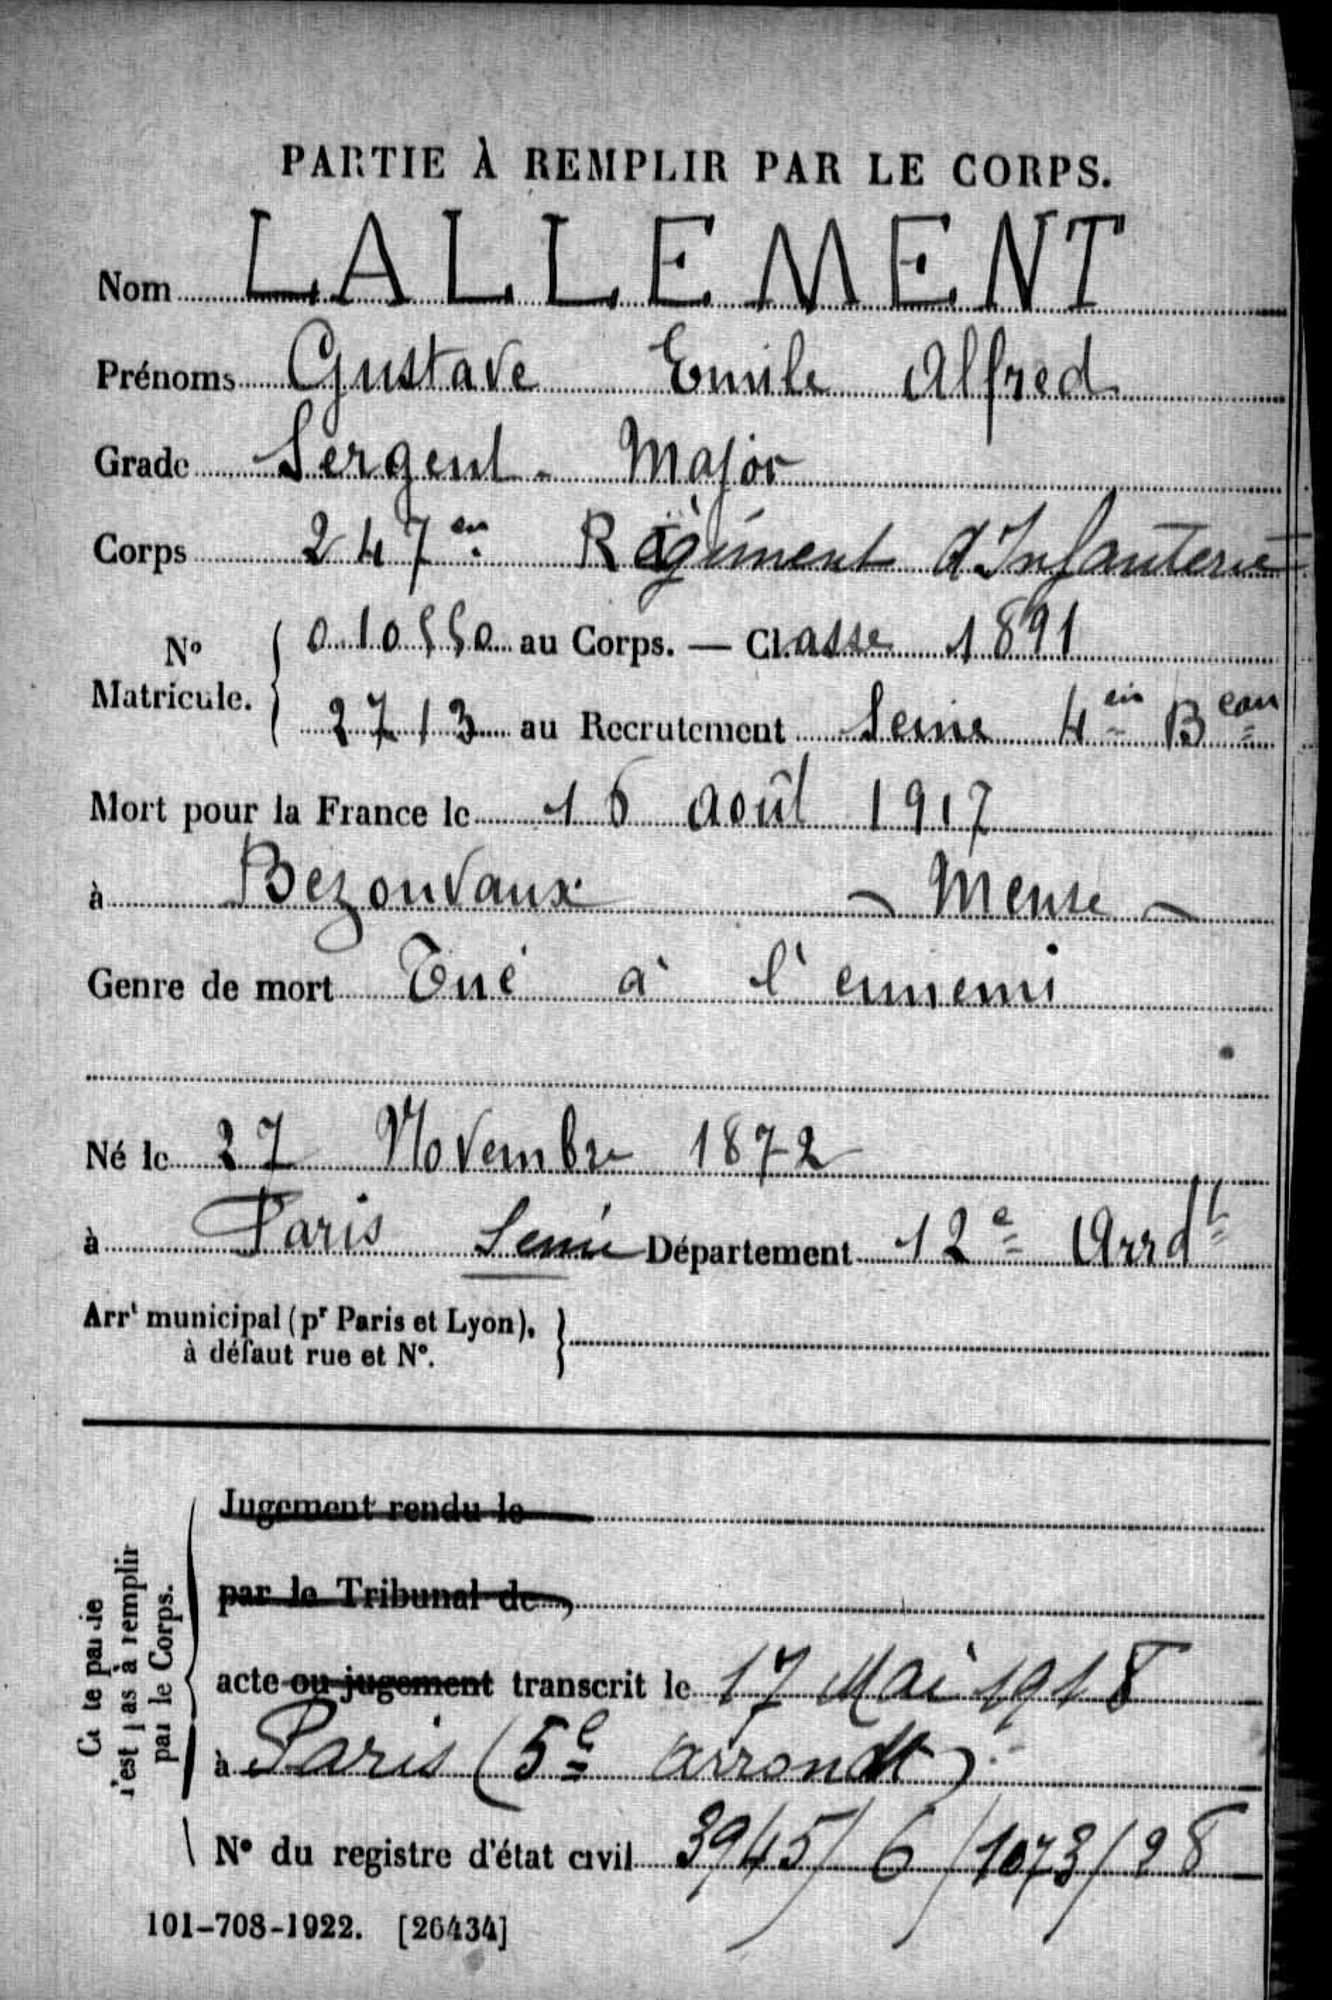 PARTIE À REMPLIR PAR LE CORPS.
Nom LALLEMENT
Prénoms Gustave Emile Alfred
Grade Sergent-Major
Corps 247en Régiment d'Infanterie
No
Matricule.
010550 au Corps. — Classe 1891
2713 au Recrutement Seine 4en Beau
Mort pour la France le 16 août 1917
à Bezonvaux - Meuse -
Genre de mort Tué à l'ennemi
Né le 27 Novembre 1872
à Paris Seine Département 12e Arrdt
Arrt municipal (pr Paris et Lyon),
à défaut rue et No.
Cette partie
n'est pas à remplir
par le Corps.
Jugement rendu le
par le Tribunal de
acte ou jugement transcrit le 17 Mai 1918
à Paris (5e arrondt)
No du registre d'état civil 3945/6/1073/28
101-708-1922. [26434]